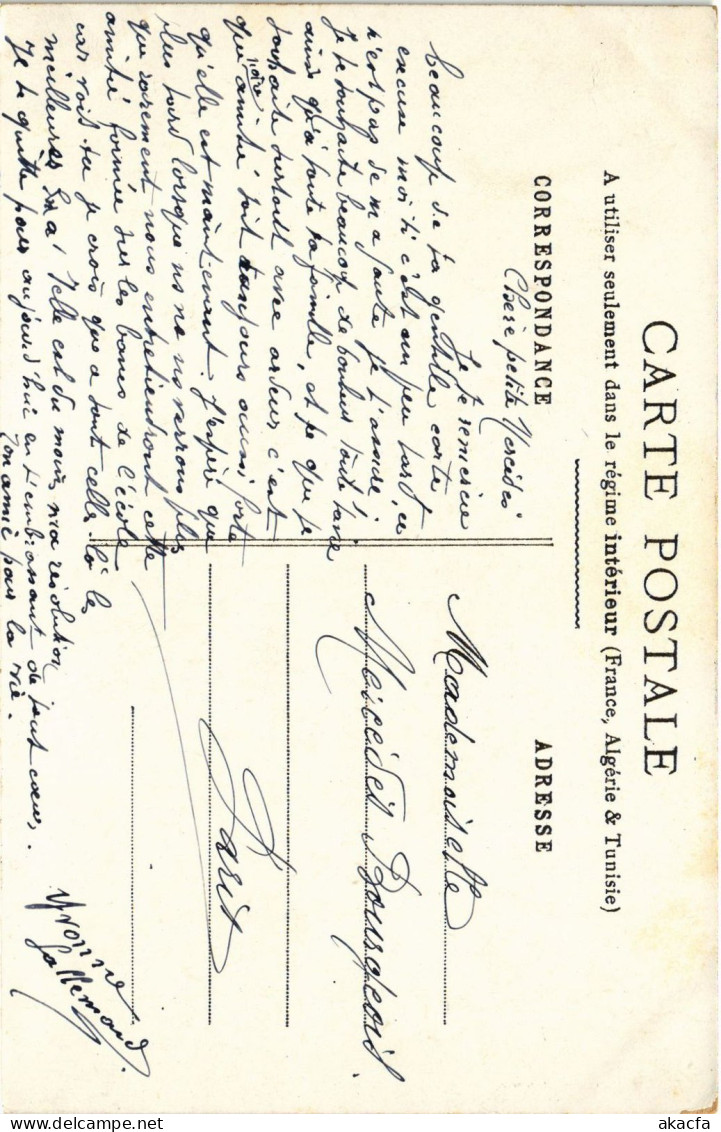 CARTE POSTALE
A utiliser seulement dans le régime intérieur (France, Algérie & Tunisie)
CORRESPONDANCE
ADRESSE
Chère petite Mercédès
Je te remercie
beaucoup de ta gentille carte
excuse moi si c'est un peu tard, ce
n'est pas de ma faute je t'assure!
Je te souhaite beaucoup de bonheur toute
ainsi qu'à toute ta famille, et ce que je
souhaite surtout avec ardeur c'est
que notre amitié soit toujours aussi forte
qu'elle est maintenant. J'espère que
plus tard lorsque ns ne ns verrons plus
que rarement nous entretiendront cette
amitié formée sur les bancs de l'école
car vois tu je crois que de tout celle là les
meilleures Telle est du moins ma résolution
Je te quitte pour aujourd'hui en t'embrassant de tout cœur.
Ton amie pour la vie.
Yvonne
Lallemand
Mademoiselle
Mercédès Bourgeois
Paris
akacfa
akacfa.com